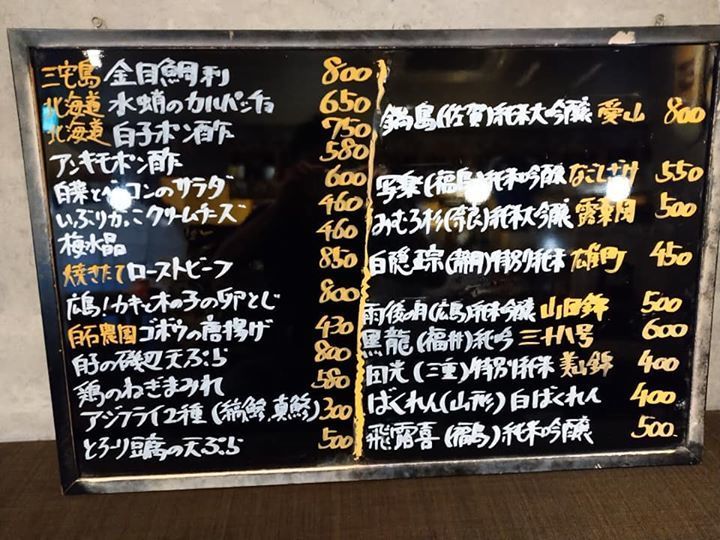 三宅島 金目鯛刺 800
北海道 水蛸のカルパッチョ 650
北海道 白子ポン酢 750
アンキモポン酢 580
白菜とベーコンのサラダ 600
いぶりがっこクリームチーズ 460
梅水晶 460
焼きたてローストビーフ 850
広島ノカキと木の子の卵とじ 800
白石農園ゴボウの唐揚げ 430
白子の磯辺天ぷら 800
鶏のねぎまみれ 580
アジフライ2種(縞鯵、真鯵) 300
とろーり豆腐の天ぷら 500
鍋島(佐賀)純米大吟醸 愛山 800
写楽(福島)純米吟醸 なごしざけ 550
みむろ杉(奈良)純米吟醸 露葉風 500
白隠正宗(静岡)特別純米 雄町 450
雨後の月(広島)純米吟醸 山田錦 500
黒龍(福井)純吟 三十八号 600
田光(三重)特別純米 美山錦 400
ばくれん(山形)白ばくれん 400
飛露喜(福島)純米吟醸 500